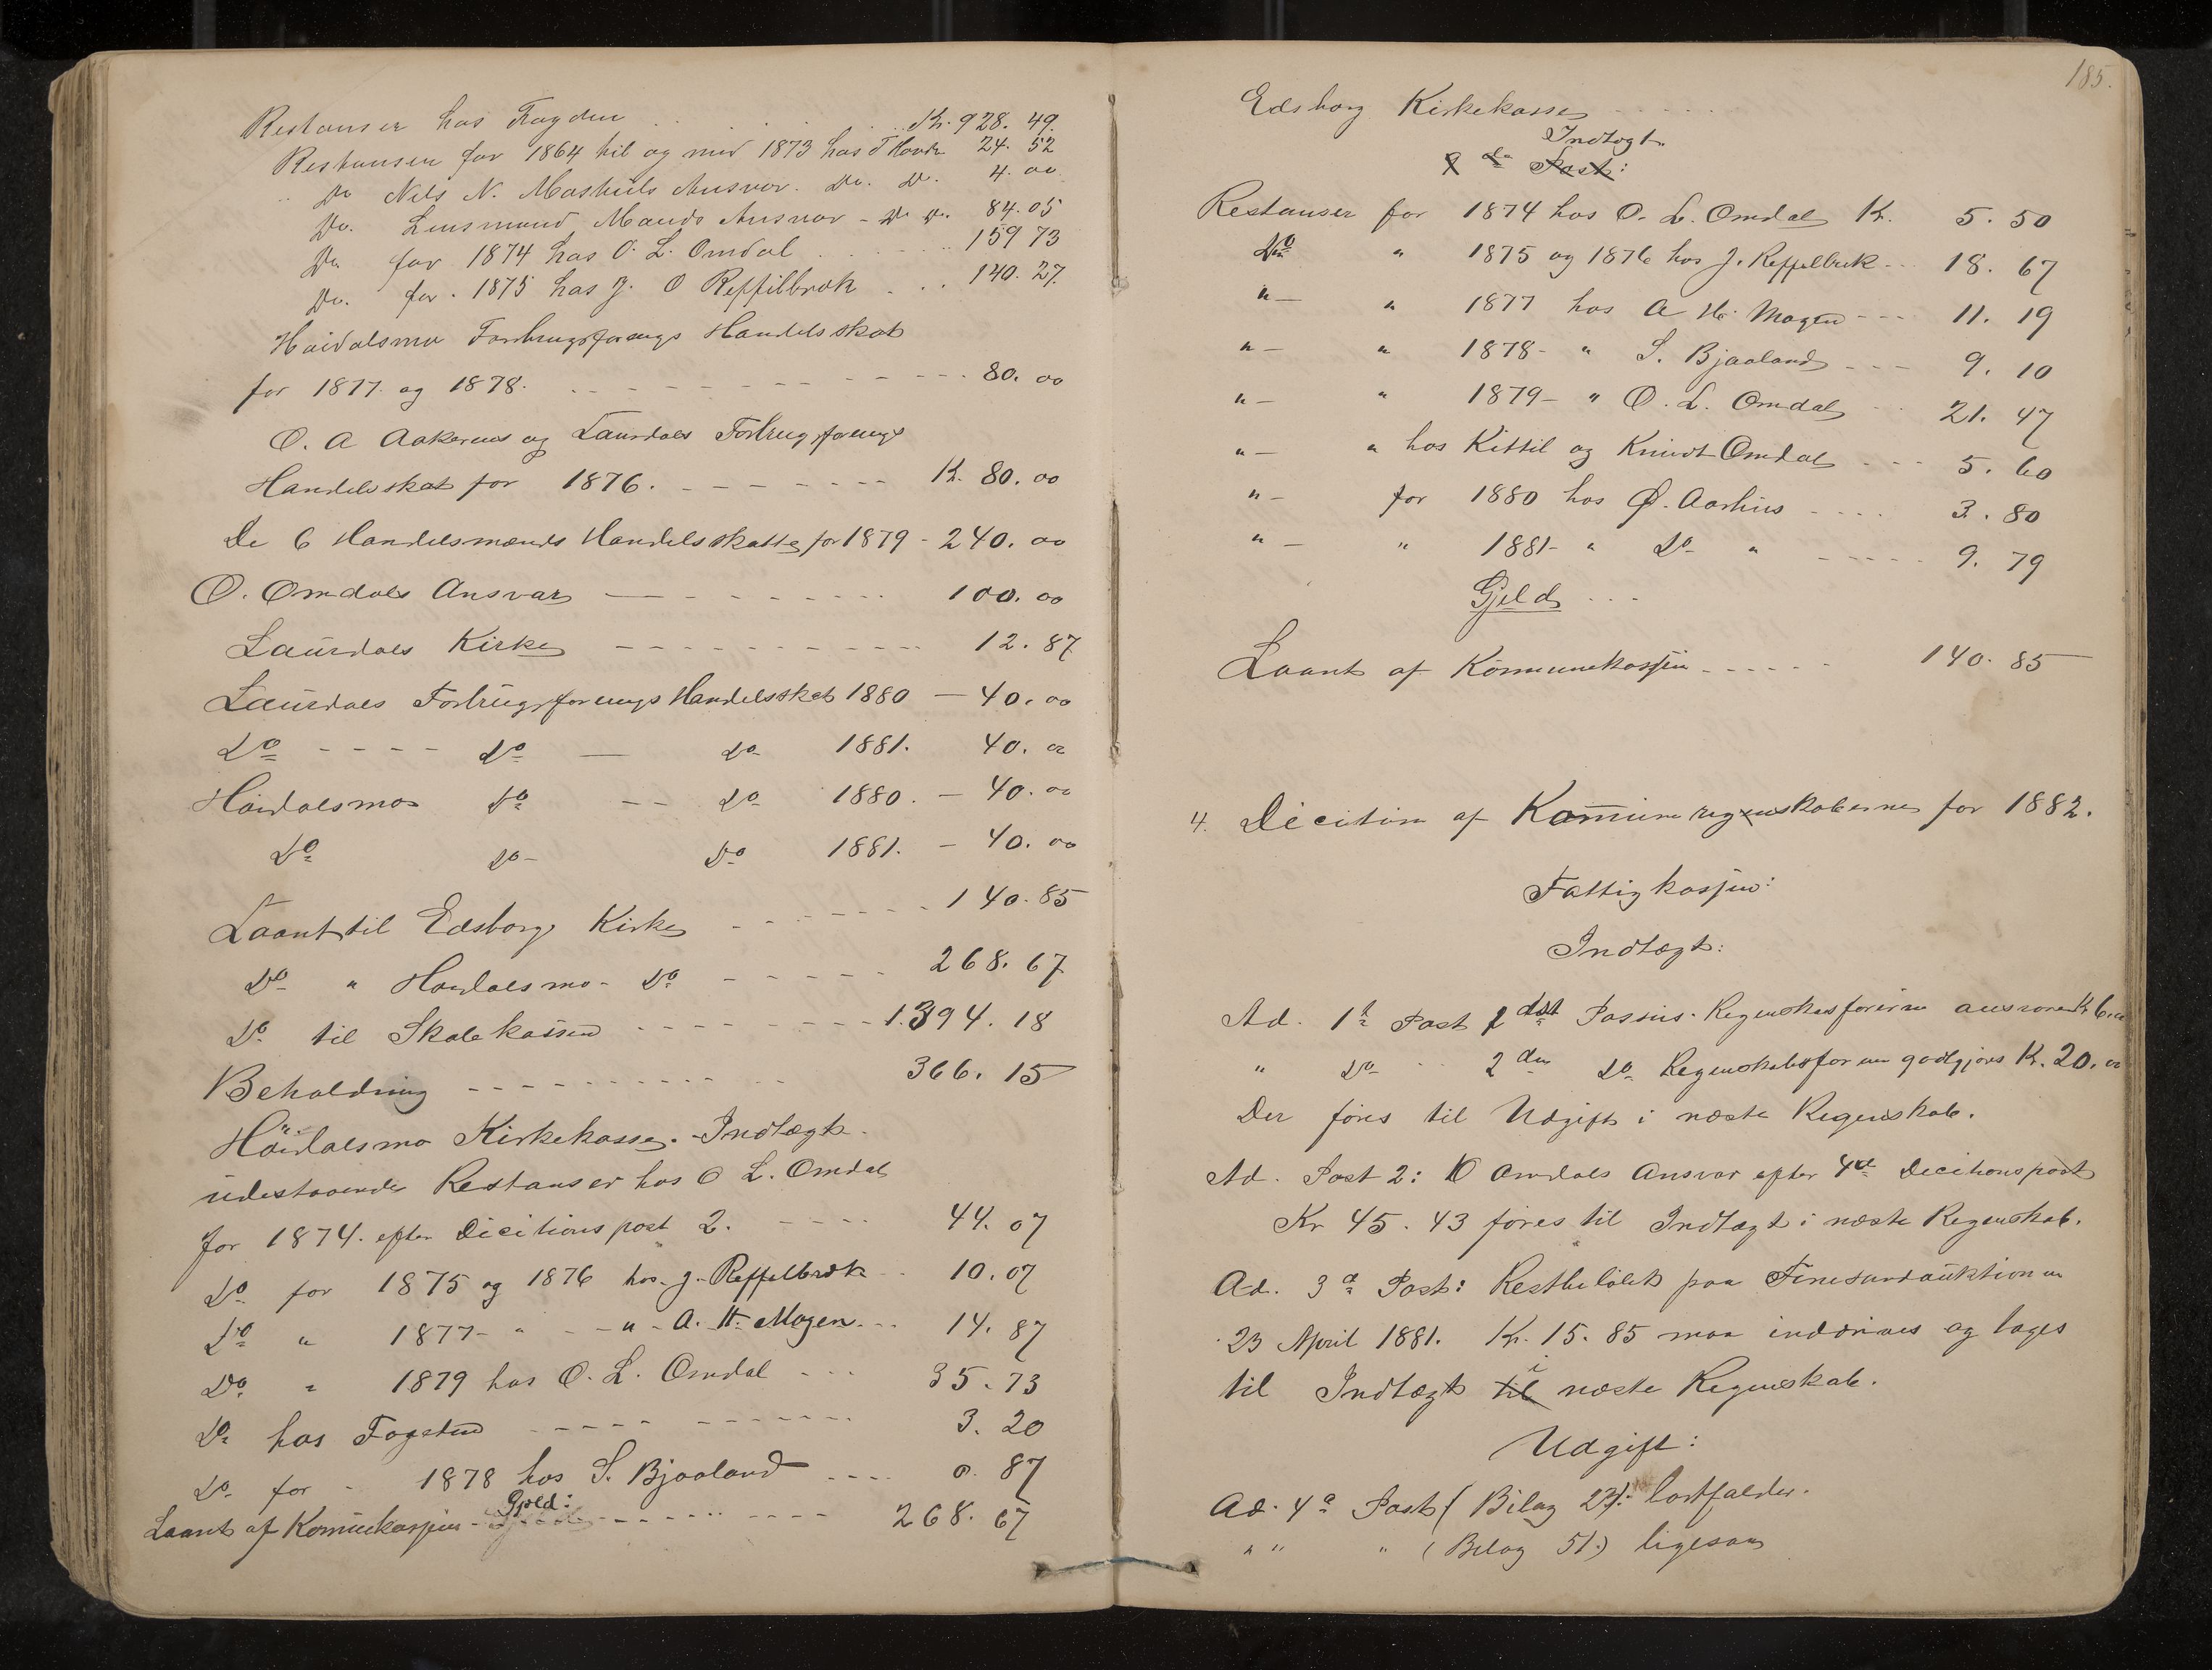 Restanser hos Fogden . . . . . Kr. 928. 49
Restansen for 1864 til og med 1873 hos T Hovde 24. 52
Do Nils N. Ansvar. Do. Do. 4. 00
Do. Lensmand Ansvar - Do Do. 84. 05
Do for 1874 hos O. L. Omdal . . . . 159 73
Do. for. 1875 hos J. O Reppilbræk . . . 140. 27
Høidalsmo Forbrugsforenigs Handelsskat
for 1877. og 1878. - - - - - - - - 80. 00
O. A Aakerens og Laurdals Forbrugsforenigs
Handelsskat for 1876. - - - - - - - K. 80. 00
De 6 Handelsmænds Handelsskatte for 1879 - 240. 00
O. Omdals Ansvar — - - - - - - 100. 00
Laurdals Kirke - - - - - - - - - - - 12. 87
Laurdals Forbrugsforenigs Handelsskat 1880 — 40. 00
Do - - - - Do — Do 1881. 40. 00
Høidalsmos Do - - Do 1880. — 40. 00
Do Do - Do 1881. - 40. 00
Laant til Edsborgs Kirke - - - - - - - 140. 85
Do " Høidalsmo - Do - - - - - 268. 67
Do til Skolekassen - - - - - - - - 1.394. 18
Beholdning - - - - - - - - - - - 366. 15
Høidalsmo Kirkekasse. - Indtægt.
udestaaende Restanser hos O L. Omdal
for 1874. efter Decitions post 2. - - - - 44. 07
Do for 1875 og 1876 hos J. Reppelbræk - - 10. 07
Do " 1877 - " - - " - A. H. Mogen. - - 14. 87
Do " 1879 hos O. L. Omdal - - - 35. 73
Do hos Fogden - - - - - - - - - - - 3. 20
Do for - 1878 hos S. Bjaaland - - - - 0. 87
Gjeld:
Laant af Komunekassen - - - - - - - - - 268. 67
185.
Edsborg Kirkekasse - - - - -
Indtægt.
Post:
Restanser for 1874 hos O. L. Omdal K. 5. 50
Do " 1875 og 1876 hos J. Reppelbræk - - 18. 67
" — " 1877 hos A H. Mogen - - - 11. 19
" — " 1878 - " S. Bjaaland - - - 9. 10
" — " 1879 - " O. L. Omdal - - 21. 47
" — " hos Kittil og Knudt Omdal - - - 5. 60
" — for 1880 hos Ø. Aarhus - - - - 3. 80
" — " 1881 - " Do " - - - - - 9. 79
Gjeld - - -
Laant af Kommunekassen - - - - - 140. 85
4. Decition af Komune regnskaberne for 1882.
Fattigkassen:
Indtægt:
Ad. 1ste Post Passus. Regnskabsføreren ansvarer Kr 6.00
" Do - - 2den Do Regnskabsføreren godtgjøres Kr. 20. 00
Der føres til Udgift i næste Regnskab.
Ad. Post 2: O Omdals Ansvar efter 4de Decitionspost
Kr 45. 43 føres til Indtægt i næste Regnskab.
Ad. 3die Post: Restbeløbet paa
23 April 1881. Kr. 15. 85 maa inddrives og tages
til Indtægt til i næste Regnskab.
Udgift:
Ad. 4de Post ( Bilag 23): bortfalder.
" " " ( Bilag 51.) ligesaa